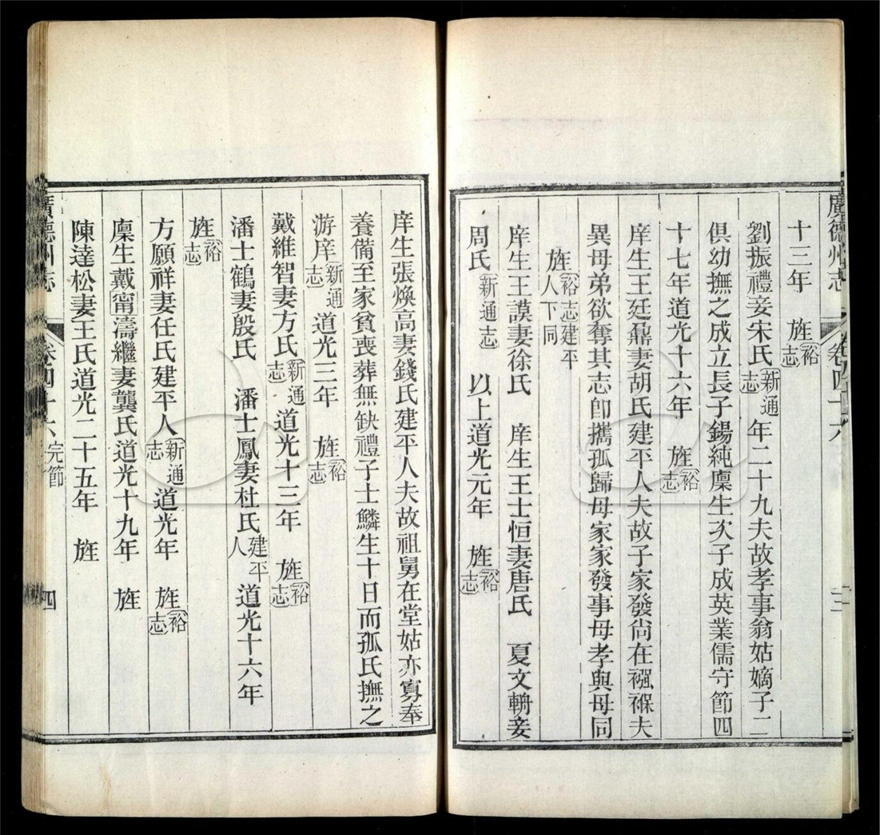 廣德州志
卷四十六
三
十三年　旌裕志
劉振禮妾宋氏新通志年二十九夫故孝事翁姑嫡子二
俱幼撫之成立長子錫純廩生次子成英業儒守節四
十七年道光十六年　旌裕志
庠生王廷鼐妻胡氏建平人夫故子家發尚在襁褓夫
異母弟欲奪其志卽攜孤歸母家家發事母孝與母同
旌裕志建平人下同
庠生王謨妻徐氏　庠生王士恒妻唐氏　夏文輈妾
周氏新通志　以上道光元年　旌裕志
庠生張煥高妻錢氏建平人夫故祖舅在堂姑亦寡奉
養備至家貧喪葬無缺禮子士鱗生十日而孤氏撫之
游庠新通志道光三年　旌裕志
戴維智妻方氏新通志道光十三年　旌裕志
潘士鶴妻殷氏　潘士鳳妻杜氏建平人道光十六年
旌裕志
方願祥妻任氏建平人新通志道光年　旌裕志
廩生戴甯濤繼妻龔氏道光十九年　旌
陳達松妻王氏道光二十五年　旌
廣德州志
卷四十六
完節
四